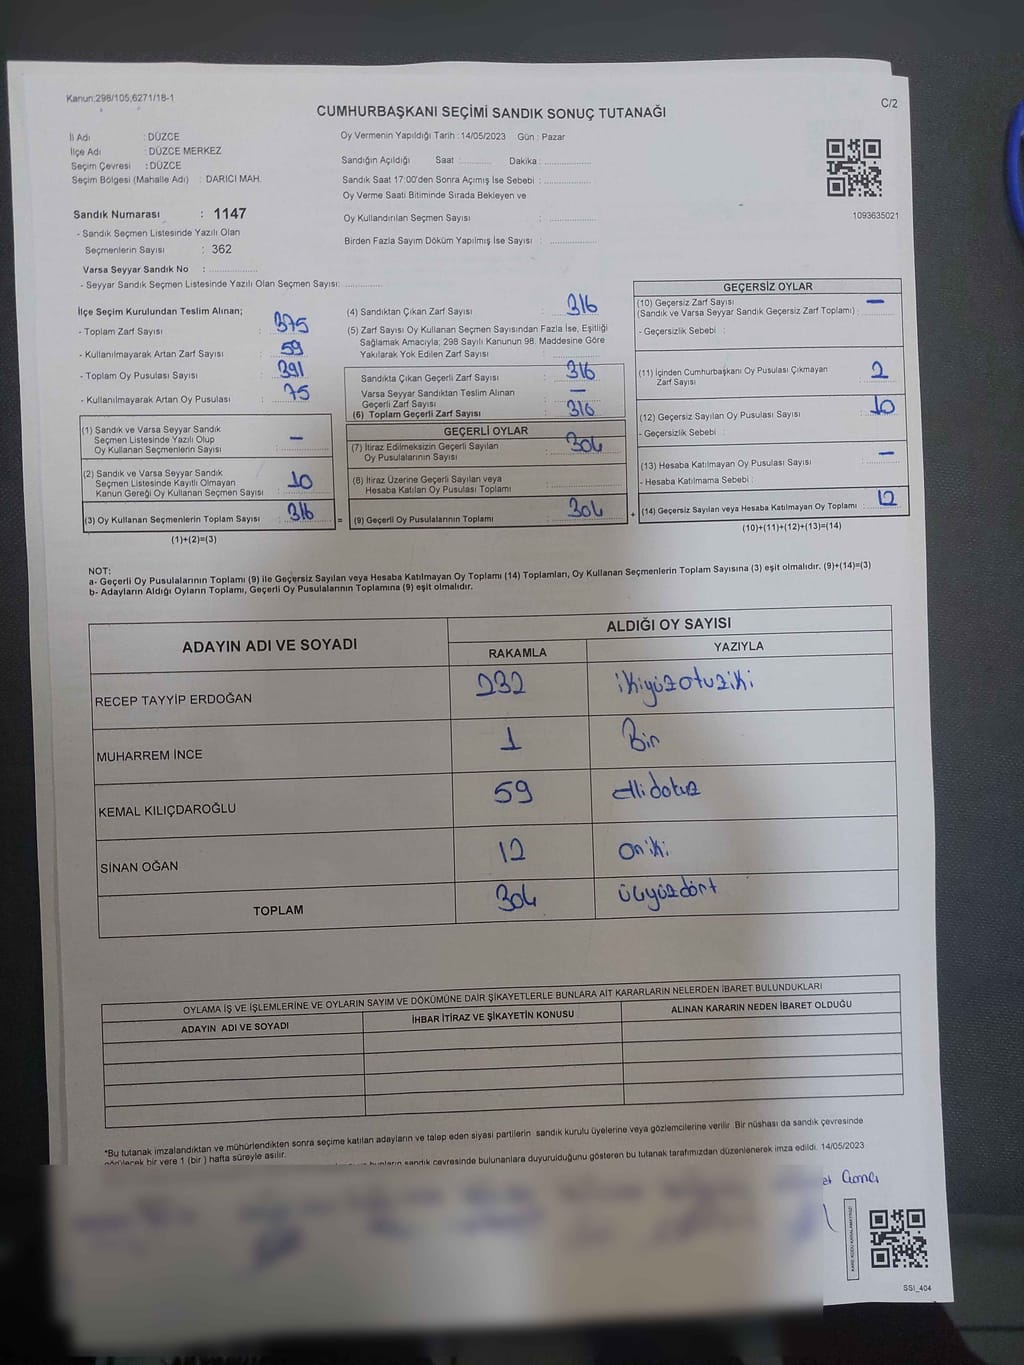 Kanun:298/105,6271/18-1
C/2
CUMHURBAŞKANI SEÇİMİ SANDIK SONUÇ TUTANAĞI
İl Adı : DÜZCE
İlçe Adı : DÜZCE MERKEZ
Seçim Çevresi : DÜZCE
Seçim Bölgesi (Mahalle Adı) : DARICI MAH.
Sandık Numarası : 1147
- Sandık Seçmen Listesinde Yazılı Olan
Seçmenlerin Sayısı : 362
Varsa Seyyar Sandık No : ................
- Seyyar Sandık Seçmen Listesinde Yazılı Olan Seçmen Sayısı: ............
Oy Vermenin Yapıldığı Tarih : 14/05/2023 Gün : Pazar
Sandığın Açıldığı Saat : .......... Dakika : ..............
Sandık Saat 17:00'den Sonra Açımış İse Sebebi : ..............
Oy Verme Saati Bitiminde Sırada Bekleyen ve
Oy Kullandırılan Seçmen Sayısı : ..............
Birden Fazla Sayım Döküm Yapılmış İse Sayısı : ..............
1093635021
İlçe Seçim Kurulundan Teslim Alınan;
- Toplam Zarf Sayısı : 375
- Kullanılmayarak Artan Zarf Sayısı : 59
- Toplam Oy Pusulası Sayısı : 391
- Kullanılmayarak Artan Oy Pusulası : 75
(1) Sandık ve Varsa Seyyar Sandık
Seçmen Listesinde Yazılı Olup
Oy Kullanan Seçmenlerin Sayısı : —
(2) Sandık ve Varsa Seyyar Sandık
Seçmen Listesinde Kayıtlı Olmayan
Kanun Gereği Oy Kullanan Seçmen Sayısı : 10
(3) Oy Kullanan Seçmenlerin Toplam Sayısı : 316 =
(1)+(2)=(3)
(4) Sandıktan Çıkan Zarf Sayısı : 316
(5) Zarf Sayısı Oy Kullanan Seçmen Sayısından Fazla İse, Eşitliği
Sağlamak Amacıyla; 298 Sayılı Kanunun 98. Maddesine Göre
Yakılarak Yok Edilen Zarf Sayısı :
Sandıkta Çıkan Geçerli Zarf Sayısı : 316
Varsa Seyyar Sandıktan Teslim Alınan
Geçerli Zarf Sayısı : —
(6) Toplam Geçerli Zarf Sayısı : 316
GEÇERLİ OYLAR
(7) İtiraz Edilmeksizin Geçerli Sayılan
Oy Pusulalarının Sayısı : 304
(8) İtiraz Üzerine Geçerli Sayılan veya
Hesaba Katılan Oy Pusulası Toplamı :
(9) Geçerli Oy Pusulalarının Toplamı : 304 +
GEÇERSİZ OYLAR
(10) Geçersiz Zarf Sayısı —
(Sandık ve Varsa Seyyar Sandık Geçersiz Zarf Toplamı) :
- Geçersizlik Sebebi :
(11) İçinden Cumhurbaşkanı Oy Pusulası Çıkmayan
Zarf Sayısı : 2
(12) Geçersiz Sayılan Oy Pusulası Sayısı : 10
- Geçersizlik Sebebi :
(13) Hesaba Katılmayan Oy Pusulası Sayısı : —
- Hesaba Katılmama Sebebi :
(14) Geçersiz Sayılan veya Hesaba Katılmayan Oy Toplamı : 12
(10)+(11)+(12)+(13)=(14)
NOT:
a- Geçerli Oy Pusulalarının Toplamı (9) ile Geçersiz Sayılan veya Hesaba Katılmayan Oy Toplamı (14) Toplamları, Oy Kullanan Seçmenlerin Toplam Sayısına (3) eşit olmalıdır. (9)+(14)=(3)
b- Adayların Aldığı Oyların Toplamı, Geçerli Oy Pusulalarının Toplamına (9) eşit olmalıdır.
ADAYIN ADI VE SOYADI
ALDIĞI OY SAYISI
RAKAMLA YAZIYLA
RECEP TAYYİP ERDOĞAN 232 ikiyüzotuziki
MUHARREM İNCE 1 Bir
KEMAL KILIÇDAROĞLU 59 ellidokuz
SİNAN OĞAN 12 oniki
TOPLAM 304 üçyüzdört
OYLAMA İŞ VE İŞLEMLERİNE VE OYLARIN SAYIM VE DÖKÜMÜNE DAİR ŞİKAYETLERLE BUNLARA AİT KARARLARIN NELERDEN İBARET BULUNDUKLARI
ADAYIN ADI VE SOYADI İHBAR İTİRAZ VE ŞİKAYETİN KONUSU ALINAN KARARIN NEDEN İBARET OLDUĞU
*Bu tutanak imzalandıktan ve mühürlendikten sonra seçime katılan adayların ve talep eden siyasi partilerin sandık kurulu üyelerine veya gözlemcilerine verilir. Bir nüshası da sandık çevresinde
görülecek bir yere 1 (bir ) hafta süreyle asılır.
sandık çevresinde bulunanlara duyurulduğunu gösteren bu tutanak tarafımızdan düzenlenerek imza edildi. 14/05/2023
SSI_404